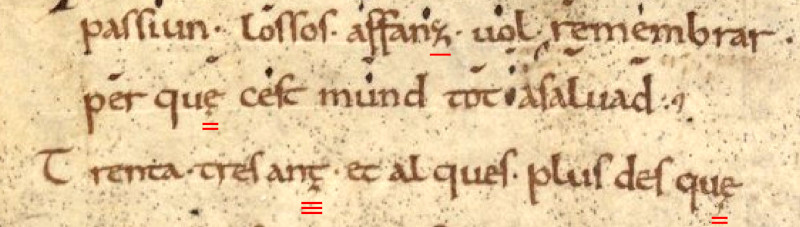 passiun · lossos · affanz · uol · remembrar ·
per quę cest mund tot asaluad ·
T renta · tres anț · et al ques · plus des quę